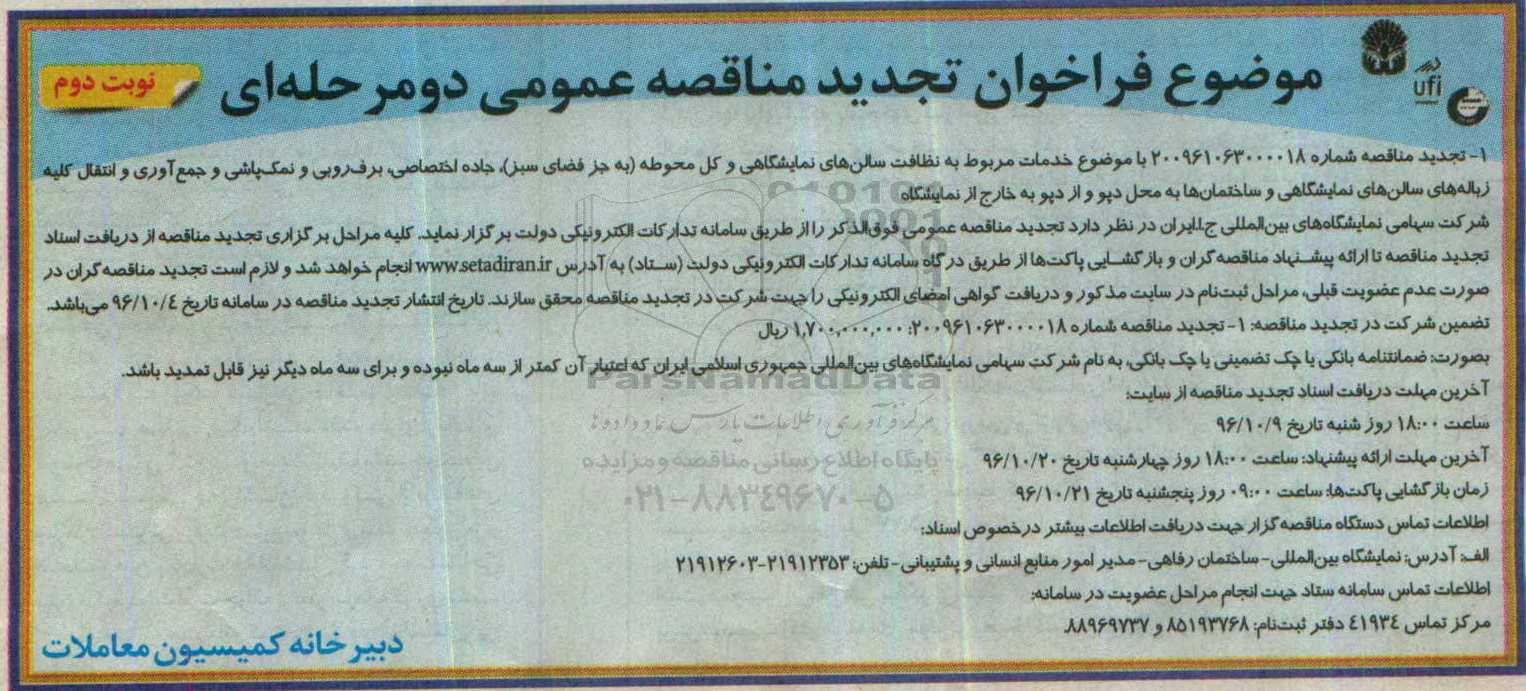 موضوع فراخوان تجدید مناقصه عمومی دومرحله‌ای
نوبت دوم
ufi
۱- تجدید مناقصه شماره ۲۰۰۹۶۱۰۶۳۰۰۰۰۱۸ با موضوع خدمات مربوط به نظافت سالن‌های نمایشگاهی و کل محوطه (به جز فضای سبز)، جاده اختصاصی، برف‌روبی و نمک‌پاشی و جمع‌آوری و انتقال کلیه
زباله‌های سالن‌های نمایشگاهی و ساختمان‌ها به محل دپو و از دپو به خارج از نمایشگاه
شرکت سهامی نمایشگاه‌های بین‌المللی ج.ا.ایران در نظر دارد تجدید مناقصه عمومی فوق‌الذکر را از طریق سامانه تدارکات الکترونیکی دولت برگزار نماید. کلیه مراحل برگزاری تجدید مناقصه از دریافت اسناد
تجدید مناقصه تا ارائه پیشنهاد مناقصه‌گران و بازگشایی پاکت‌ها از طریق درگاه سامانه تدارکات الکترونیکی دولت (ستاد) به آدرس www.setadiran.ir انجام خواهد شد و لازم است تجدید مناقصه‌گران در
صورت عدم عضویت قبلی، مراحل ثبت‌نام در سایت مذکور و دریافت گواهی امضای الکترونیکی را جهت شرکت در تجدید مناقصه محقق سازند. تاریخ انتشار تجدید مناقصه در سامانه تاریخ ۹۶/۱۰/۴ می‌باشد.
تضمین شرکت در تجدید مناقصه: ۱- تجدید مناقصه شماره ۲۰۰۹۶۱۰۶۳۰۰۰۰۱۸: ۱,۷۰۰,۰۰۰,۰۰۰ ریال
بصورت: ضمانتنامه بانکی یا چک تضمینی یا چک بانکی، به نام شرکت سهامی نمایشگاه‌های بین‌المللی جمهوری اسلامی ایران که اعتبار آن کمتر از سه ماه نبوده و برای سه ماه دیگر نیز قابل تمدید باشد.
آخرین مهلت دریافت اسناد تجدید مناقصه از سایت:
ساعت ۱۸:۰۰ روز شنبه تاریخ ۹۶/۱۰/۹
آخرین مهلت ارائه پیشنهاد: ساعت ۱۸:۰۰ روز چهارشنبه تاریخ ۹۶/۱۰/۲۰
زمان بازگشایی پاکت‌ها: ساعت ۰۹:۰۰ روز پنجشنبه تاریخ ۹۶/۱۰/۲۱
اطلاعات تماس دستگاه مناقصه‌گزار جهت دریافت اطلاعات بیشتر درخصوص اسناد:
الف: آدرس: نمایشگاه بین‌المللی- ساختمان رفاهی- مدیر امور منابع انسانی و پشتیبانی- تلفن: ۲۱۹۱۲۳۵۳-۲۱۹۱۲۶۰۳
اطلاعات تماس سامانه ستاد جهت انجام مراحل عضویت در سامانه:
مرکز تماس ۴۱۹۳۴ دفتر ثبت‌نام: ۸۵۱۹۳۷۶۸ و ۸۸۹۶۹۷۳۷.
دبیرخانه کمیسیون معاملات
ParsNamadData
مرکز فرآوری اطلاعات پارس نماد داده ها
پایگاه اطلاع رسانی مناقصه و مزایده
۰۲۱-۸۸۳۴۹۶۷۰-۵